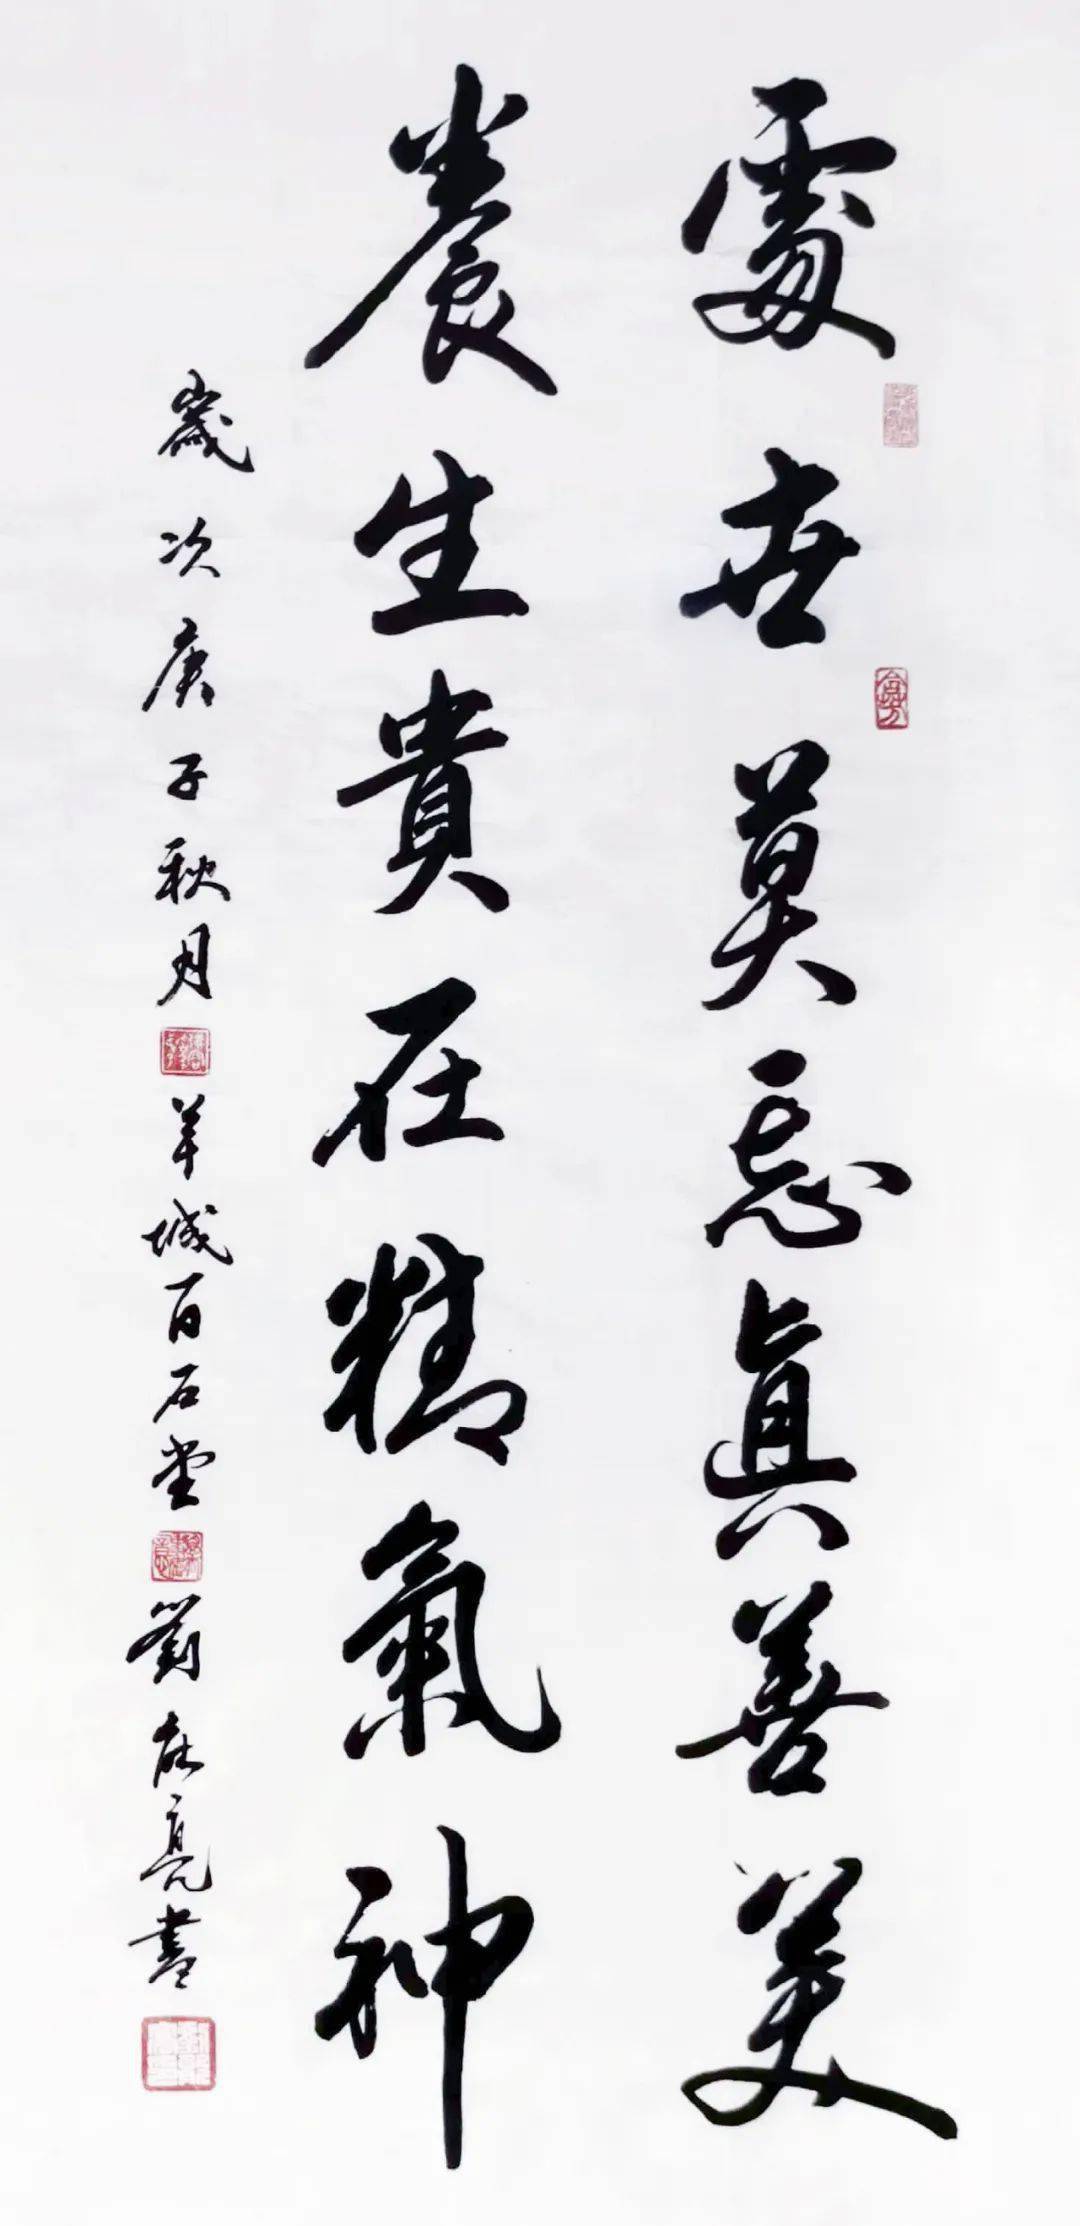 處世莫忘眞善美
養生貴在精氣神
歲次庚子秋月羊城百石堂劉亮書